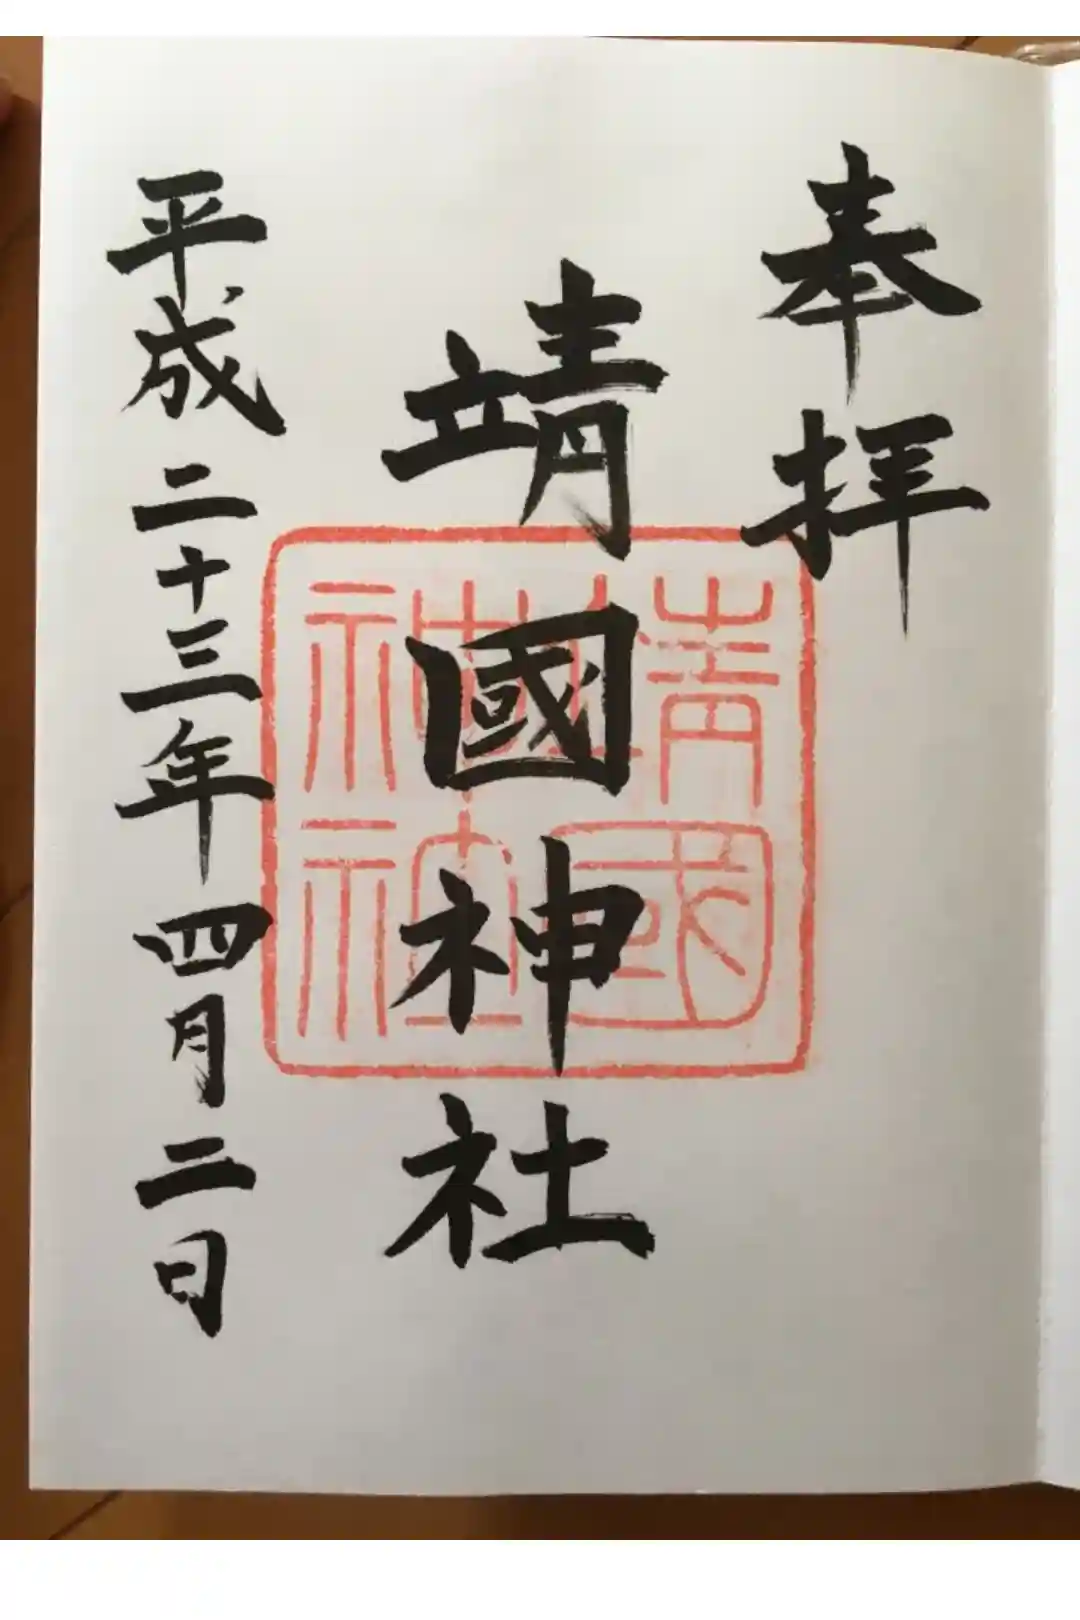 奉拝
靖國神社
平成二十三年四月二日
靖國
神社